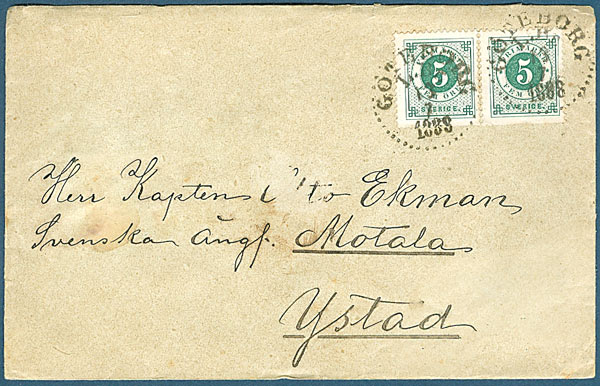 GÖTEBORG
L.BR.
7
1888
FRIMÄRKE
5
FEM ÖRE
SVERIGE.
GÖTEBORG
7
1888
FRIMÄRKE
5
FEM ÖRE
SVERIGE.
Herr Kapten Otto Ekman
Svenska Ångf. Motala
Ystad